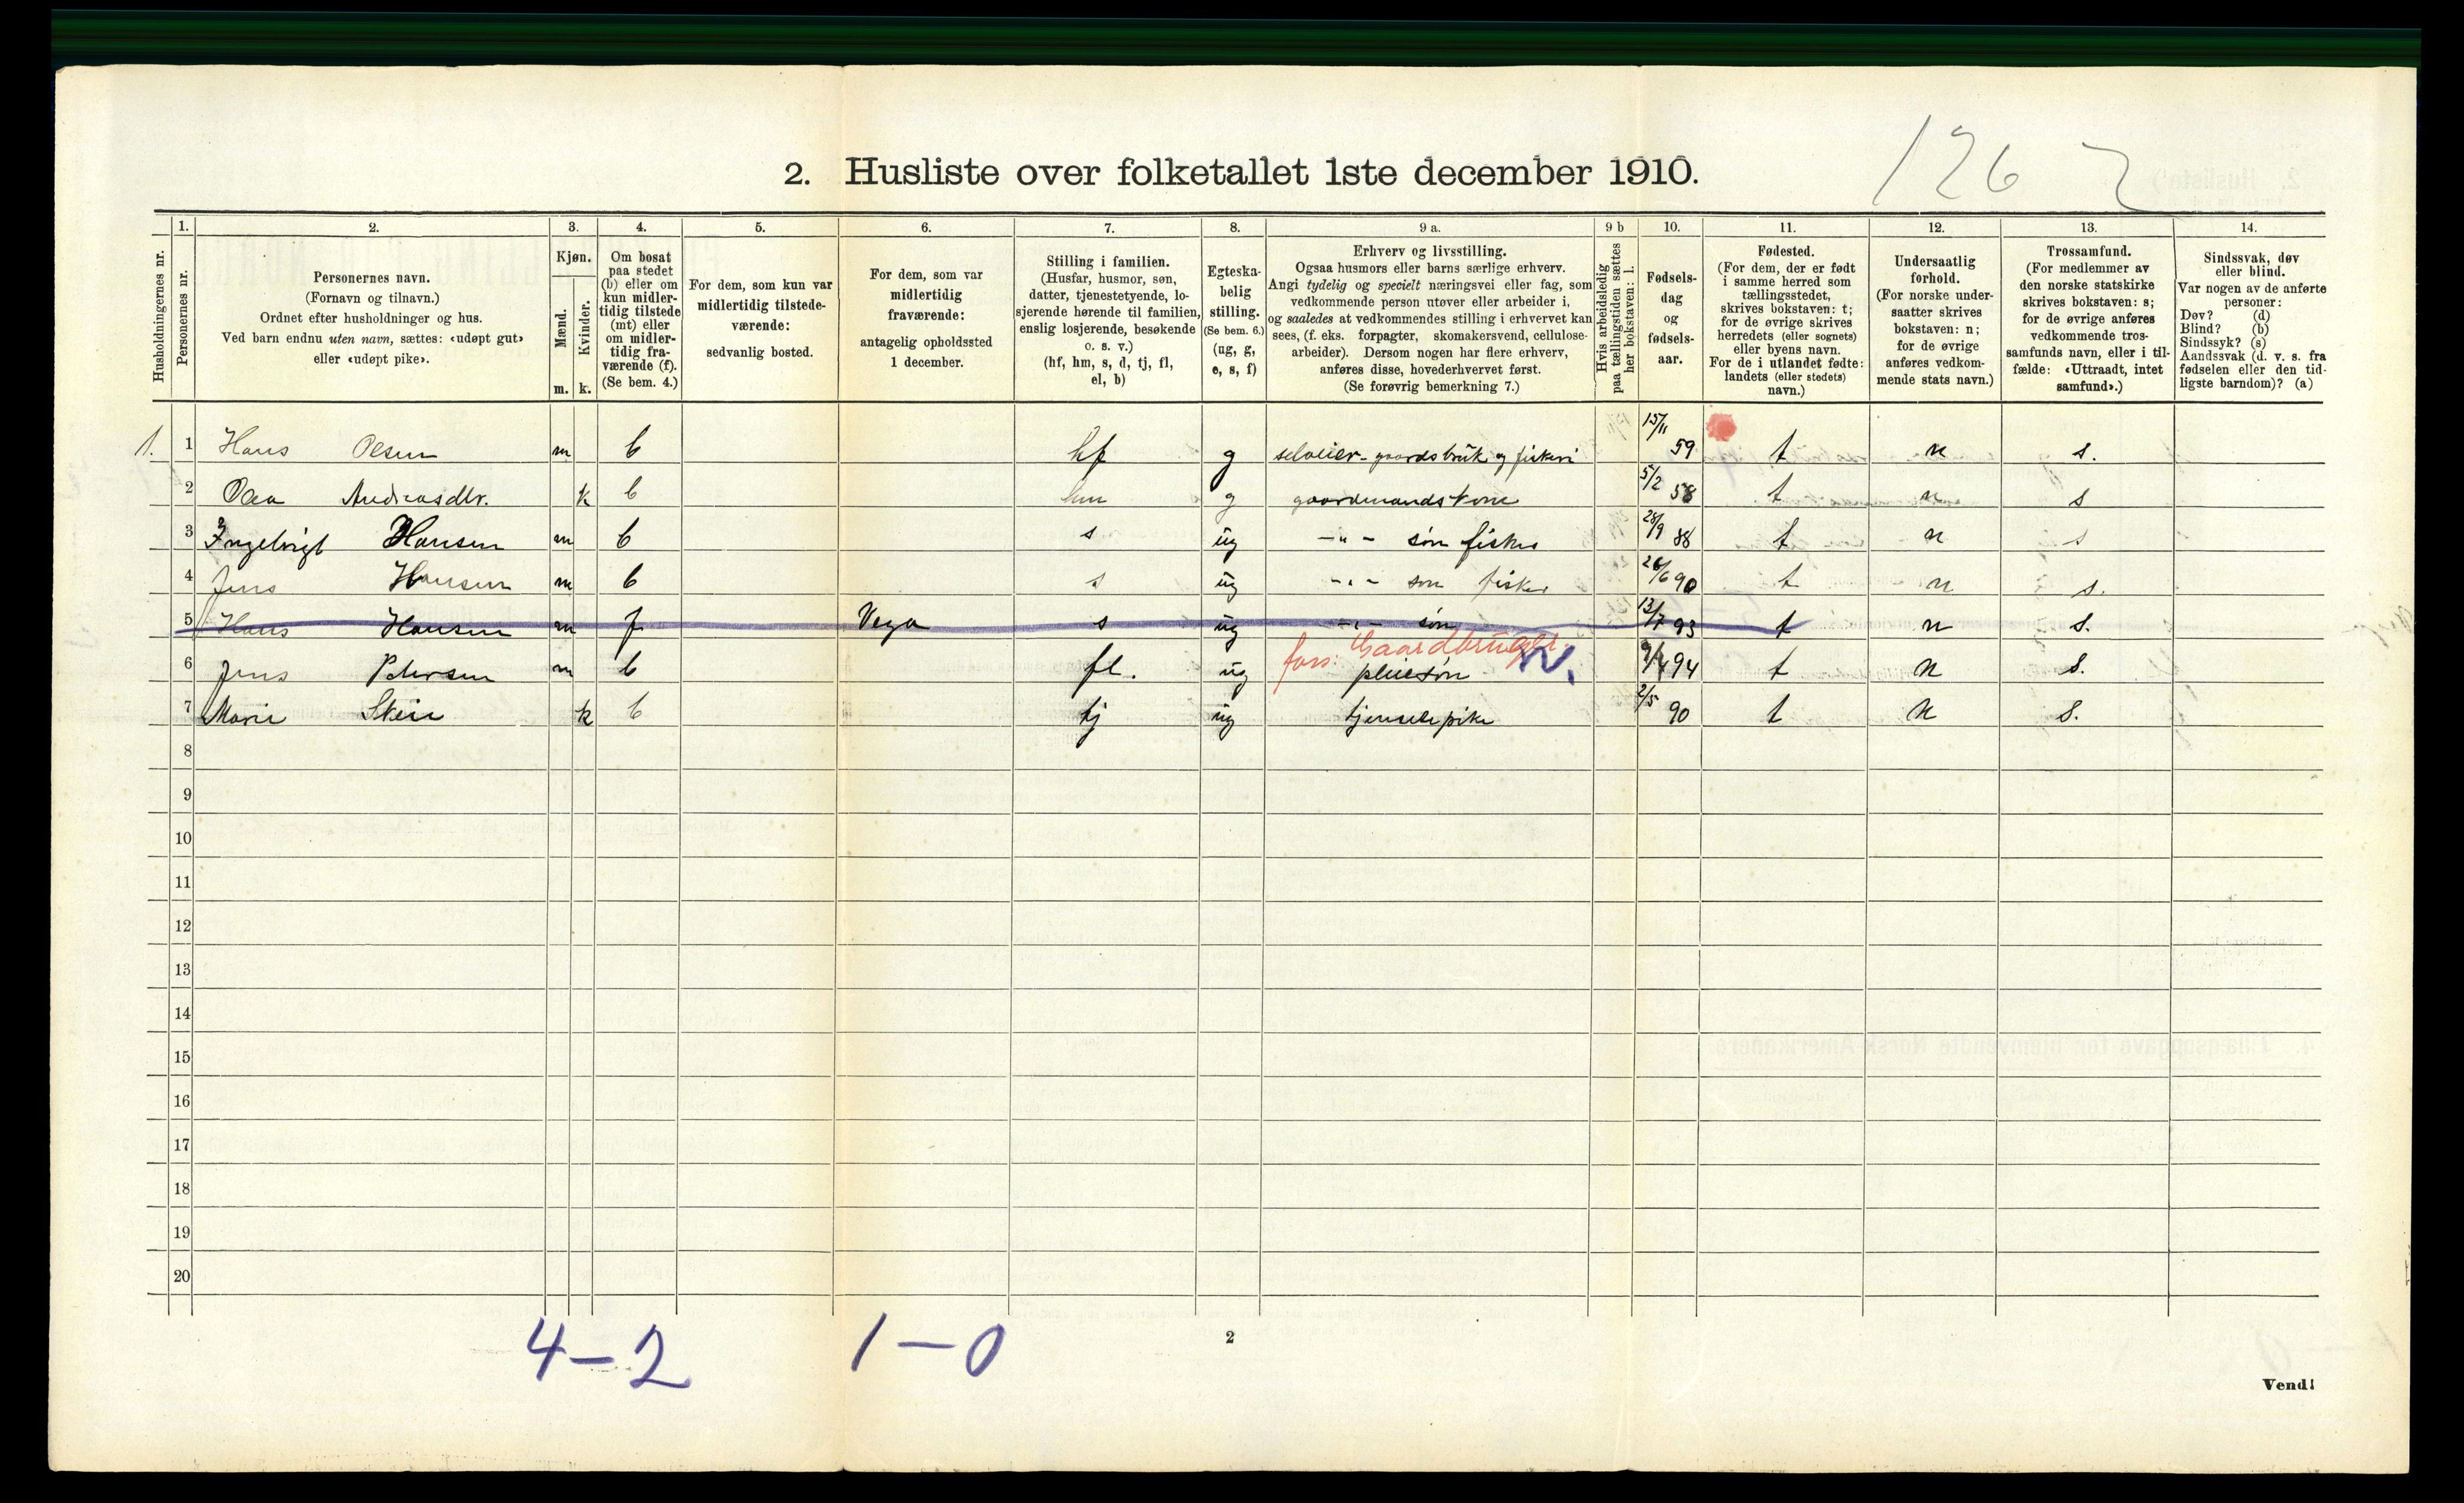 126 2
2. Husliste over folketallet 1ste december 1910.
Husholdningernes nr.
1.
Personernes nr.
2.
Personernes navn.
(Fornavn og tilnavn.)
Ordnet efter husholdninger og hus.
Ved barn endnu uten navn, sættes: «udøpt gut»
eller «udøpt pike».
3.
Kjøn.
Mænd.
m.
Kvinder.
k.
4.
Om bosat
paa stedet
(b) eller om
kun midler-
tidig tilstede
(mt) eller
om midler-
tidig fra-
værende (f).
(Se bem. 4.)
5.
For dem, som kun var
midlertidig tilstede-
værende:
sedvanlig bosted.
6.
For dem, som var
midlertidig
fraværende:
antagelig opholdssted
1 december.
7.
Stilling i familien.
(Husfar, husmor, søn,
datter, tjenestetyende, lo-
sjerende hørende til familien,
enslig losjerende, besøkende
o. s. v.)
(hf, hm, s, d, tj, fl,
el, b)
8.
Egteska-
belig
stilling.
(Se bem. 6.)
(ug, g,
e, s, f)
9 a.
Erhverv og livsstilling.
Ogsaa husmors eller barns særlige erhverv.
Angi tydelig og specielt næringsvei eller fag, som
vedkommende person utøver eller arbeider i,
og saaledes at vedkommendes stilling i erhvervet kan
sees, (f. eks. forpagter, skomakersvend, cellulose-
arbeider). Dersom nogen har flere erhverv,
anføres disse, hovederhvervet først.
(Se forøvrig bemerkning 7.)
9 b
Hvis arbeidsledig
paa tællingstiden sættes
her bokstaven: l.
10.
Fødsels-
dag
og
fødsels-
aar.
11.
Fødested.
(For dem, der er født
i samme herred som
tællingsstedet,
skrives bokstaven: t;
for de øvrige skrives
herredets (eller sognets)
eller byens navn.
For de i utlandet fødte:
landets (eller stedets)
navn.)
12.
Undersaatlig
forhold.
(For norske under-
saatter skrives
bokstaven: n;
for de øvrige
anføres vedkom-
mende stats navn.)
13.
Trossamfund.
(For medlemmer av
den norske statskirke
skrives bokstaven: s;
for de øvrige anføres
vedkommende tros-
samfunds navn, eller i til-
fælde: «Uttraadt, intet
samfund».)
14.
Sindssvak, døv
eller blind.
Var nogen av de anførte
personer:
Døv? (d)
Blind? (b)
Sindssyk? (s)
Aandssvak (d. v. s. fra
fødselen eller den tid-
ligste barndom)? (a)
1. 1 Hans Olsen m b hf g selveier-gaardsbruk og fiskeri 15/11 59 t n s.
2 Olea Andreasdtr. k b hm g gaardmandskone 5/2 58 t n s
3 Ingebrigt Hansen m b s ug -"- søn fisker 28/9 88 t n s
4 Jens Hansen m b s ug -"- søn fisker 26/6 90 t n s.
5 Hans Hansen m f Vega s ug -"- søn 13/7 93 t n s.
fors. Gaardbruger. W.
6 Jens Petersen m b fl. ug pleiesøn 9/4 94 t n s.
7 Marie Skeie k b tj ug tjenestepike 2/5 90 t n s.
8
9
10
11
12
13
14
15
16
17
18
19
20
4-2 1-0
2
Vend!